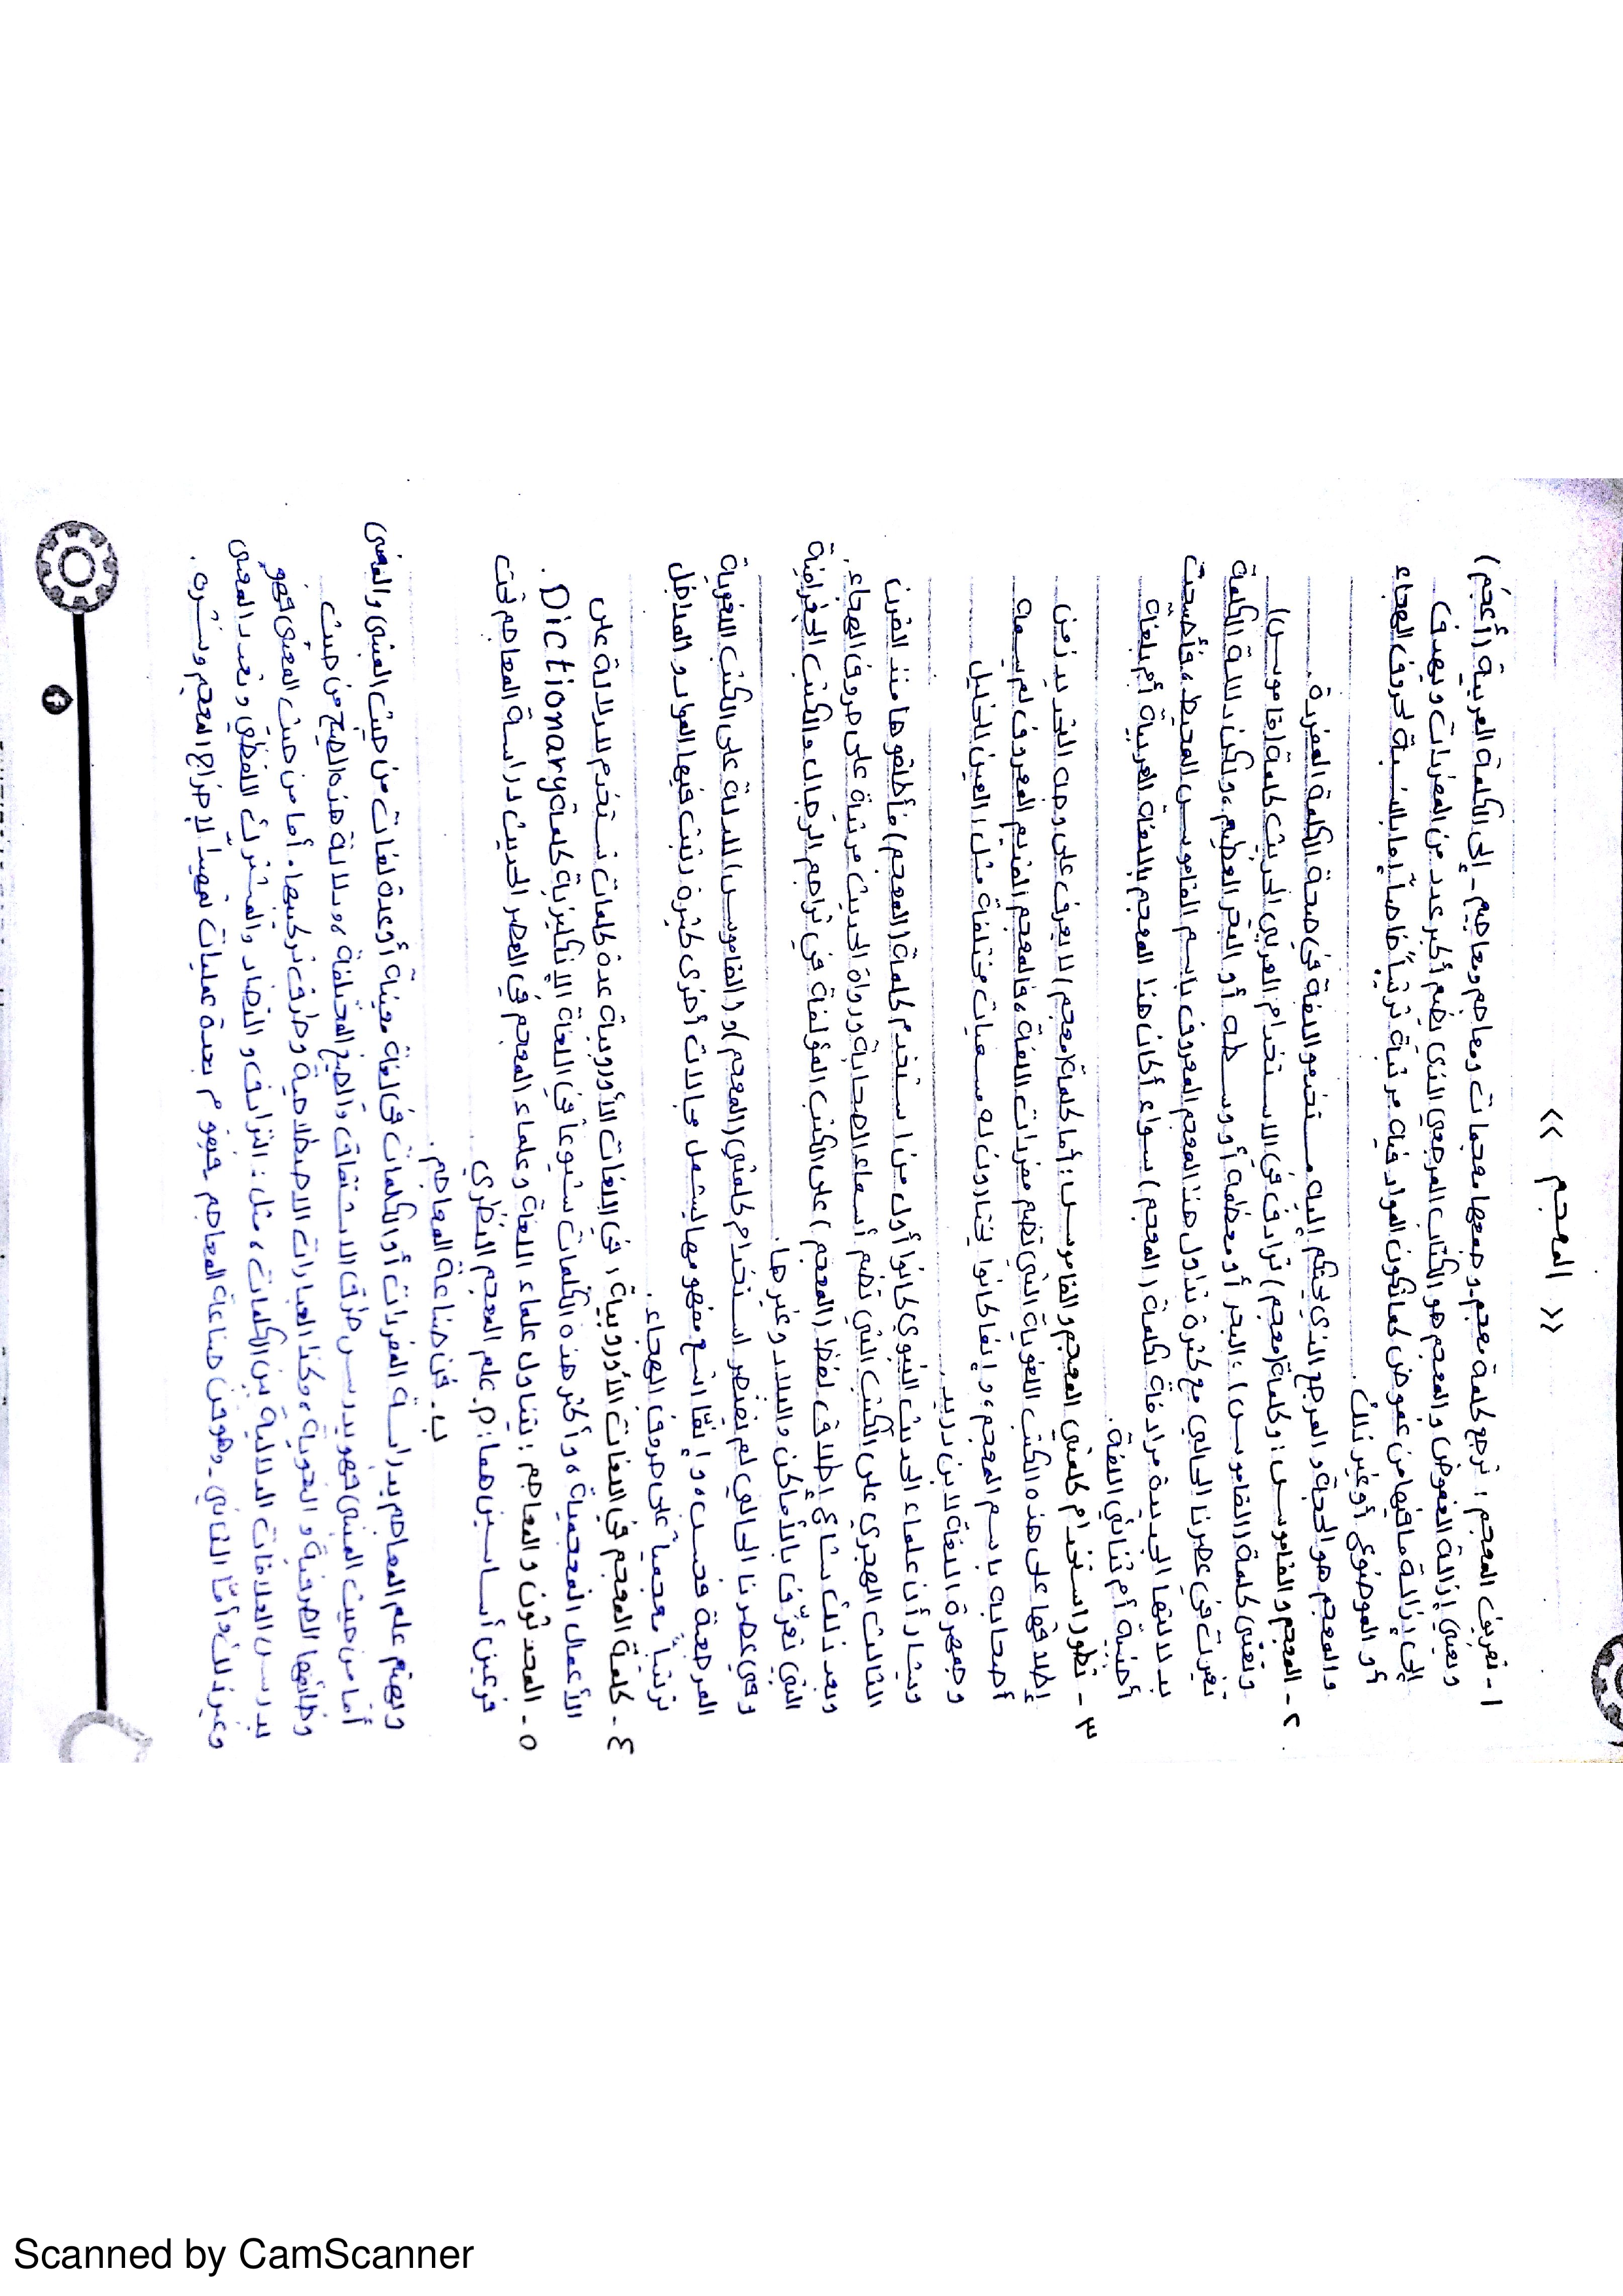 << المعجم >>
١- تعريف المعجم : ترجع كلمة معجم - وجمعها معجمات ومعاجم ومعاجيم - إلى الكلمة العربية (أعجَمَ)
وتعني إزالة الغموض والمعجم هو الكتاب المرجعي الذي يضم أكبر عدد من المفردات ويهدف
إلى إزالة ما فيها من غموض كما تكون المواد فيه مرتبة ترتيباً خاصاً إما بالنسبة لحروف الهجاء
أو الموضوع أو غير ذلك .
والمعجم هو الحجة والمرجع الذي يحتكم إليه مستخدمو اللغة في صحة الكلمة المفردة .
٢- المعجم والقاموس : وكلمة (معجم) ترادف في الاستخدام العربي الحديث كلمة (قاموس)
وتعني كلمة (القاموس) : البحر أو معظمه أو وسطه أو البحر العظيم ، ولكن دلالة الكلمة
تغيرت في عصرنا الحالي مع كثرة تداول هذا المعجم المعروف باسم القاموس المحيط ، فأصبحت
بدلالتها الجديدة مرادفة لكلمة (المعجم) سواء أكان هذا المعجم باللغة العربية أم بلغة
أجنبية أم ثنائي اللغة .
٣- تطور استخدام كلمتي المعجم والقاموس : أما كلمة (معجم) لا يعرف على وجه التحديد زمن
إطلاقها على هذه الكتب اللغوية التي تضم مفردات اللغة ، فالمعجم القديم المعروف لم يسمه
أصحابه باسم المعجم ، وإنما كانوا يختارون له مسميات مختلفة مثل : العين للخليل
وجمهرة اللغة لابن دريد .
ويشار أن علماء الحديث النبوي كانوا أول من استخدم كلمة (المعجم) فأطلقوها منذ القرن
الثالث الهجري على الكتب التي تضم أسماء الصحابة ورواة الحديث مرتبة على حروف الهجاء .
وبعد ذلك شاع إطلاق لفظ (المعجم) على الكتب المؤلفة في تراجم الرجال والكتب الجغرافية
التي تعرّف بالأماكن والبلاد وغيرها .
وفي عصرنا الحالي لم يقتصر استخدام كلمتي (المعجم) و(القاموس) للدلالة على الكتب اللغوية
المرجعية فحسب ، وإنمّا اتسع مفهومها ليشمل مجالات أخرى كثيرة رتبت فيها المواد والمداخل
ترتيباً معجمياً على حروف الهجاء .
٤- كلمة المعجم في اللغات الأوروبية : في اللغات الأوروبية عدة كلمات تستخدم للدلالة على
الأعمال المعجمية ، وأكثر هذه الكلمات شيوعاً في اللغة الإنكليزية كلمة Dictionary .
٥- المحدثون والمعاجم : يتناول علماء اللغة وعلماء المعجم في العصر الحديث دراسة المعاجم تحت
فرعين أساسيين هما : م. علم المعجم النظري .
ب. فن صناعة المعاجم .
ويهتم علم المعاجم بدراسة المفردات أو الكلمات في لغة معينة أو عدة لغات من حيث المبنى والمعنى
أما من حيث المبنى فهو يدرس طرق الاشتقاق والصيغ المختلفة ، ودلالة هذه الصيغ من حيث
وظائفها الصرفية و النحوية ، وكذا العبارات الاصطلاحية وطرق تركيبها . أما من حيث المعنى فهو
يدرس العلاقات الدلالية بين الكلمات ، مثل : الترادف والتضاد والمشترك اللفظي وتعدد المعنى
وغير ذلك وأمّا الثاني - وهو فن صناعة المعاجم فيقوم بعدة عمليات تمهيداً لإخراج المعجم ونشره .
Scanned by CamScanner